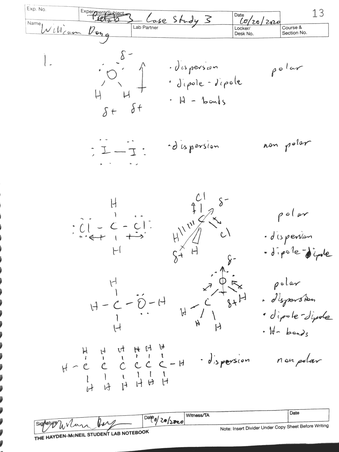 Exp. No.
Experiment/Subject
Case Study 3
Date
10/20/2020
13
Name
William Dong
Lab Partner
Locker/
Desk No.
Course &
Section No.
1.
δ-
O
H H
δ+ δ+
· dispersion
· dipole-dipole
· H-bonds
polar
I — I
· dispersion
non polar
H
Cl - C - Cl
H
Cl
δ-
C
H
Cl
δ+ H
polar
· dispersion
· dipole-dipole
H
H - C - O - H
H
δ-
O
C
H
δ+
H H H
polar
· dispersion
· dipole-dipole
· H-bonds
H H H H H H
H - C C C C C C - H
H H H H H H
· dispersion
non polar
Signature
William Dong
Date
10/20/2020
Witness/TA
Date
THE HAYDEN-McNEIL STUDENT LAB NOTEBOOK
Note: Insert Divider Under Copy Sheet Before Writing